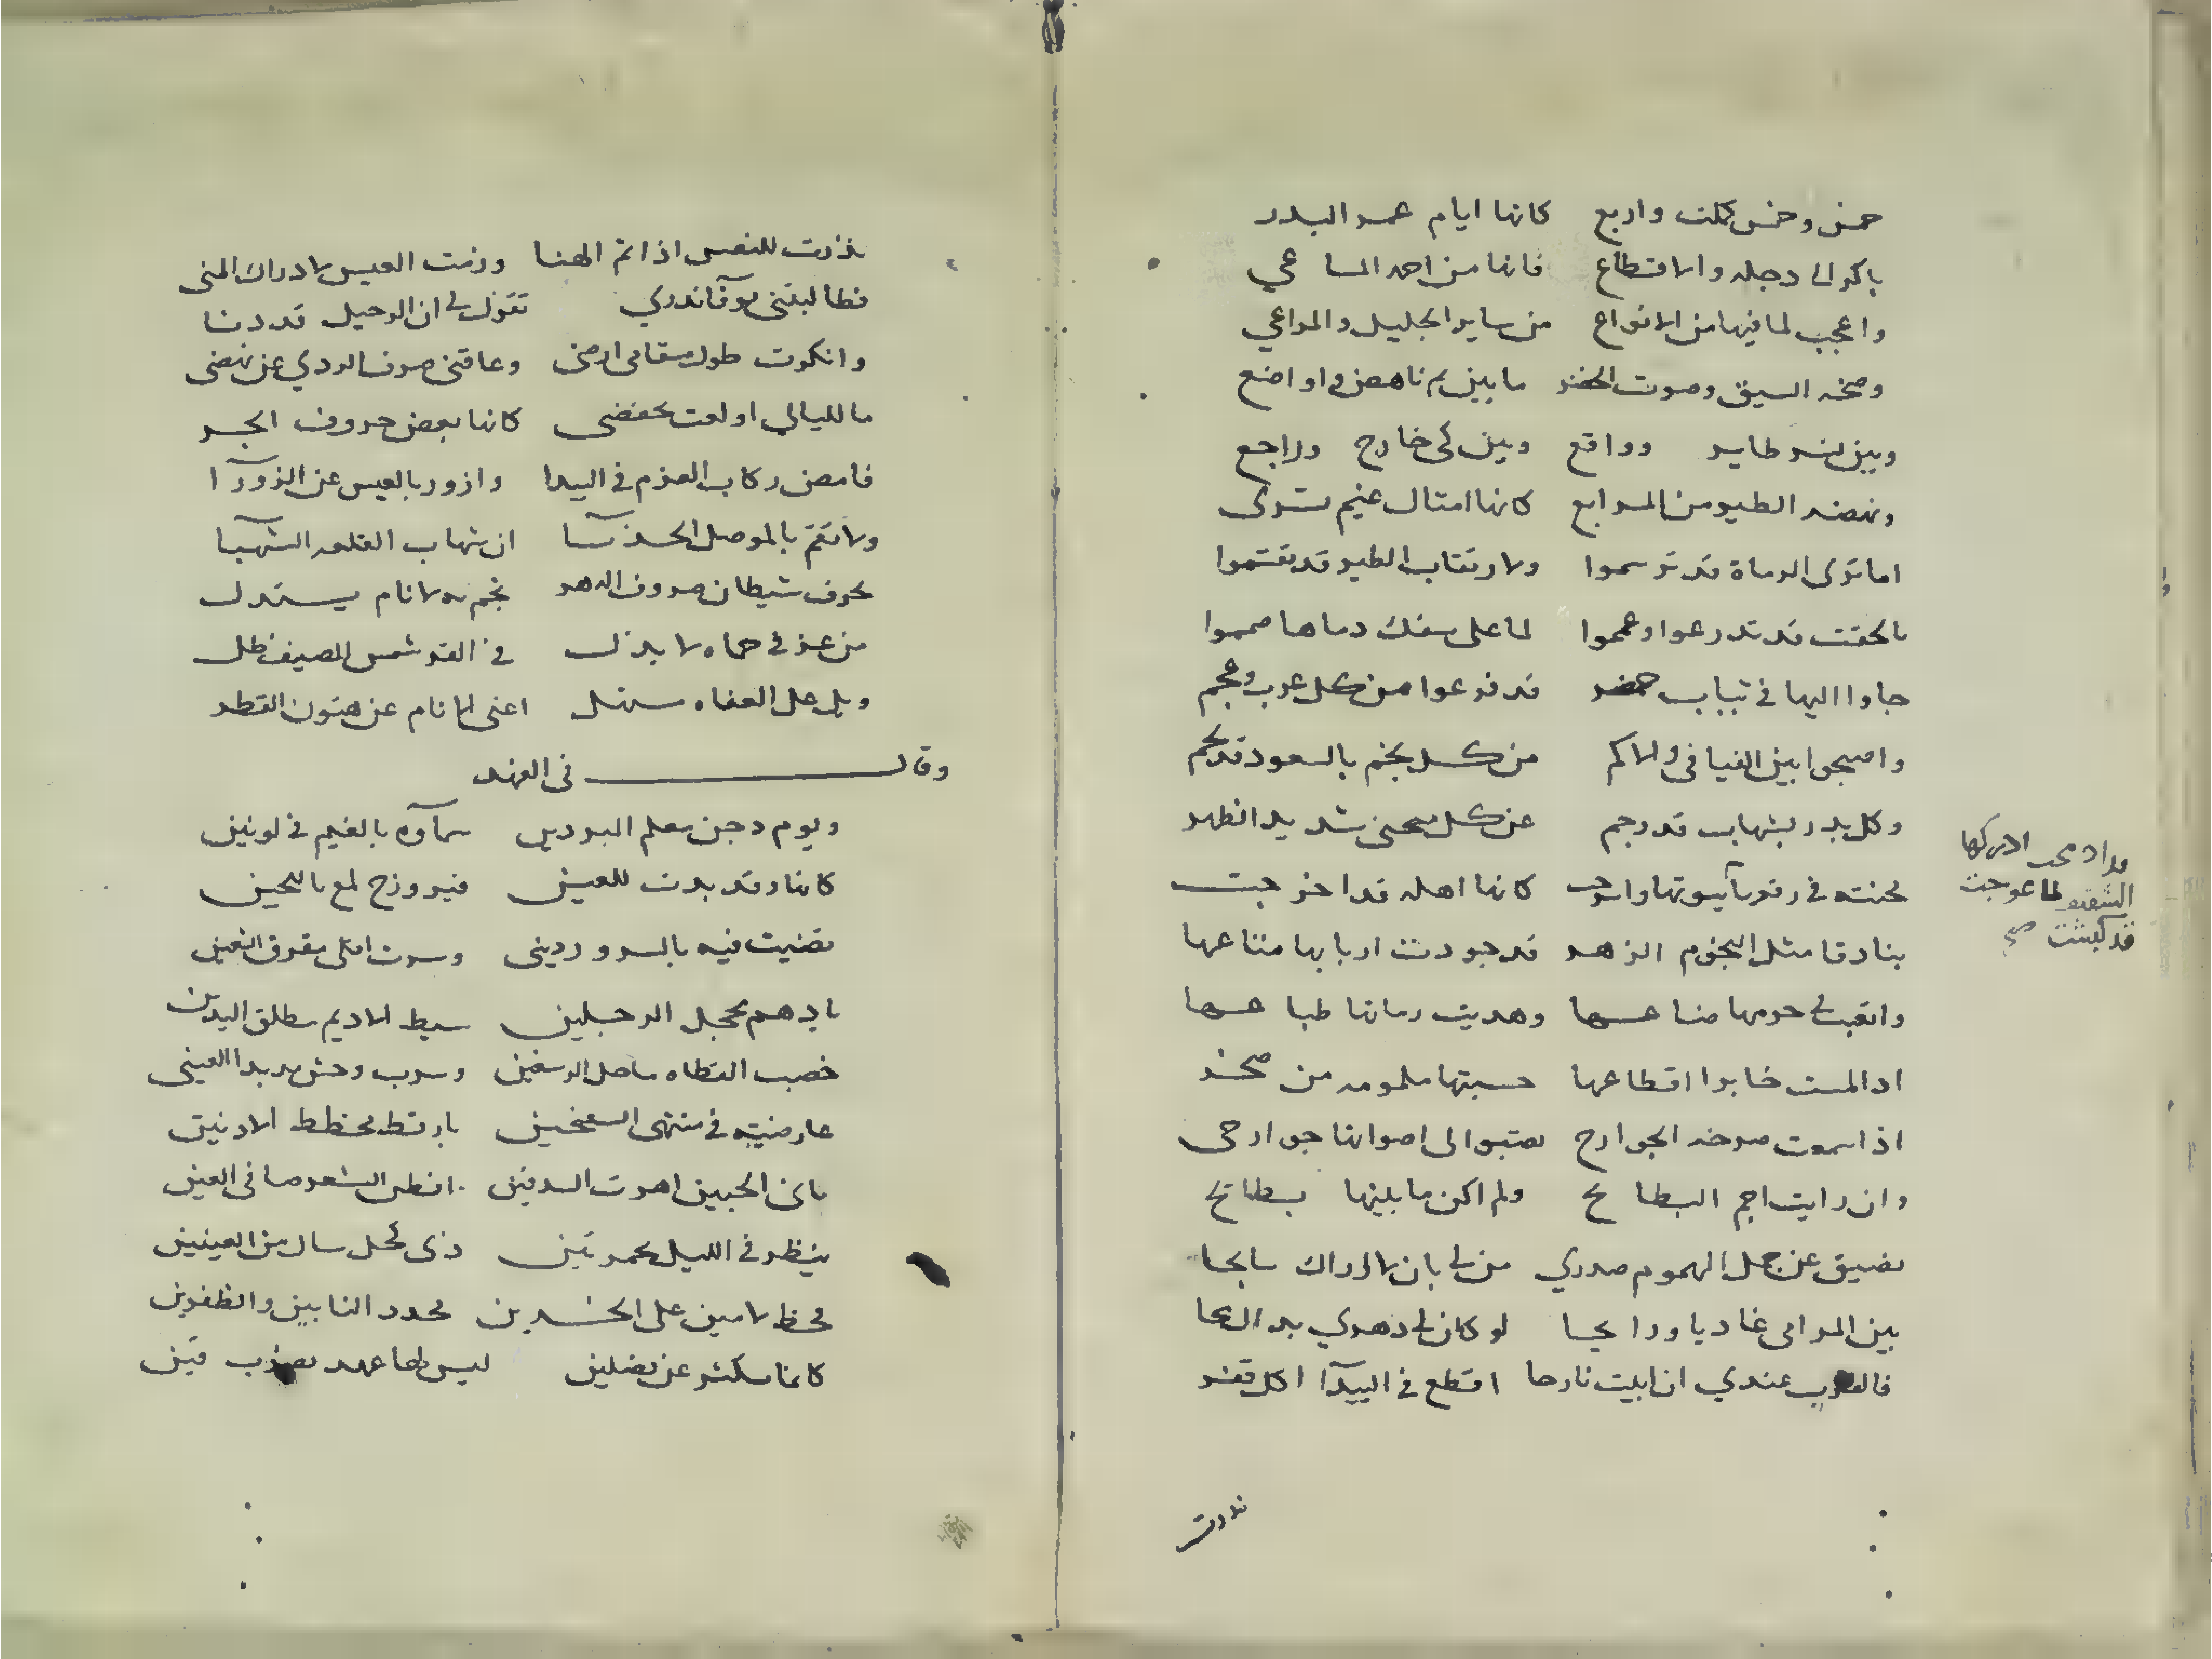 خمس وخمس كملت واربع كانها ايام عمر البدر
باكر الى دجله والاقطاع فانها من احمد المساعي
واعجب لما فيها من الانواع من ساير الجليل والمراعي
وضجه السيق وصوت الخضر ما بين تم ناهض واواضع
وبين نسر طاير وواقع وبين كي خارج وراجع
ونهضه الطير من المرابع كانها امثال غيم تسرى
اما ترى الرماة قد ترسموا ولارتقاب الطير قد تقسموا
بالجفت قد تدرعوا وعمموا لما على سفك دماها صمموا
جاوا اليها في ثياب حمر قد فرعوا من كل عرب وعجم
واصبحوا بين الفيافي والاكم من كل نجم بالسعود قد نجم
وكل بدر بشهاب قد رجم عن كل محنى شديد الظهر
محنيه في رفعها كانها اهله قد اخرجت
قد ادركها لما عوجت قد كبست صح
بنادقا مثل النجوم الزهر قد جودت اربابها متاعها
واتعبت في حرمها صناعها وهذبت رماتها طباعها
اذا لمست خابرا اقطاعها حسبتها ملمومه من صخر
اذا سمعت صرخه الجوارح تصبوا الى اصواتها جوارحي
وان رايت اجم البطايح ولم اكن ما بينها بطايح
تضيق عن حمل الهموم صدري من لي بان لا ازال سايحا
بين المرامى غاديا ورايحا لو كان لي دهري بذاك سمحا
فالقرب عندي ان ابيت نازحا اقطع في البيدآ كل قفر
نذرت
نذرت للنفس اذا تم الهنا وزمت العيس لادراك المنى
فطالبتني تقول لي ان الرحيل قد دنا
وانكرت طول مقامى ارضى وعاقني صرف الردي عن نهضى
ما لليالي اولعت بخفضى كانها بعض حروف الجر
فامض ركاب العزم في البيدا وازور بالعيس عن الزورآ
ولا تقم بالموصل الحدبآ ان شهاب القلعه الشهبا
بحرق شيطان صروف الدهر نجم به الانام يستدل
من عز في حماه لا يذل في القر شمس المصيف ظل
وبل على العفاه ستهل اغنى الانام عن هتون القطر
وقال في الفهد
ويوم دجن معلم البردين سمآوه بالغيم في لونين
كانها وقد بدت للعين فيروزج لمع باللجين
قضيت فيه بالسرور ديني وسرت افلى مفرق الشعبين
بادهم محجل الرجلين سبط الاديم مطلق اليدين
خصب القطاه ماحل الرسغين وسرب وحش مذ بدا لعيني
عارضته في منتهى السفحين بارقط مخطط الاذنين
ناتى الجبين اهرت الشدقين افطس الشعر صافى العين
ينظر في الليل بجمرتين ذى كحل سال من العينين
فخط لامين على الخدين محدد النابين والظفرين
كانما يكشر عن نصلين ليس لها عهد بضرب قين